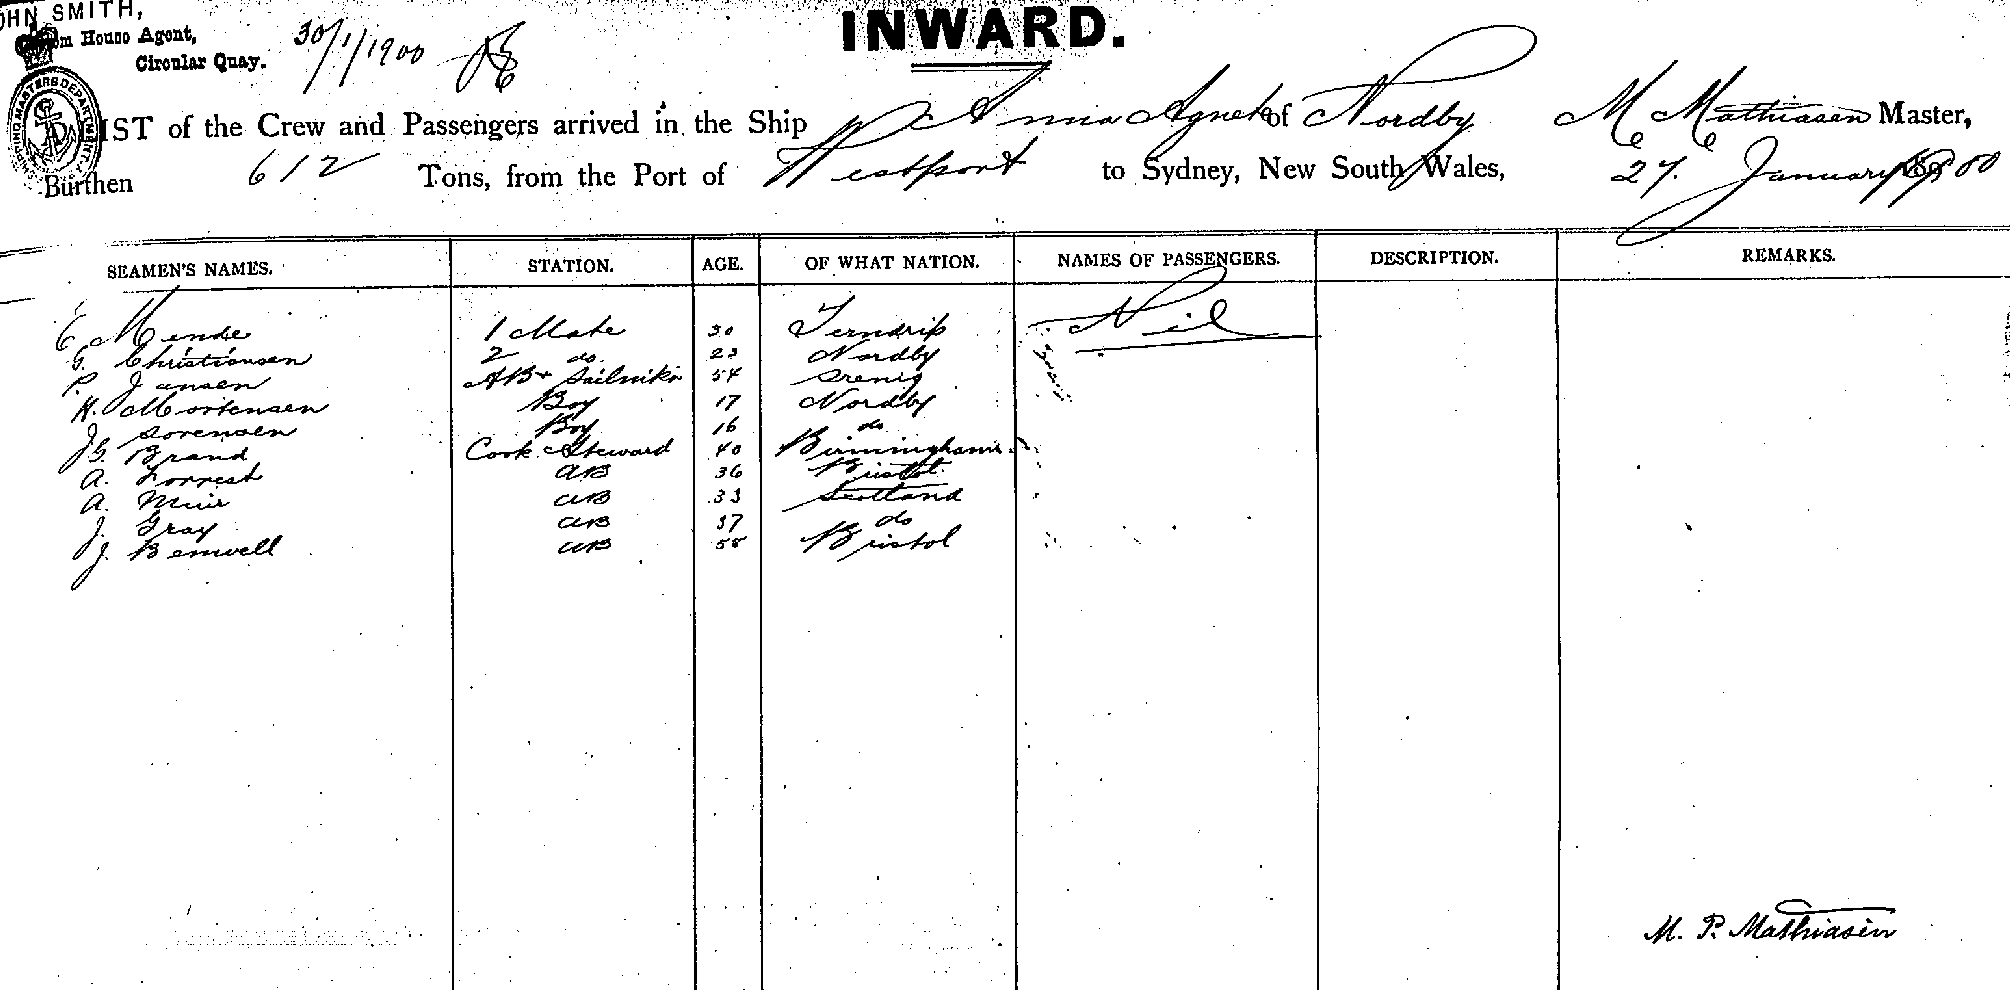 JOHN SMITH,
Custom House Agent,
Circular Quay.
30/1/1900
INWARD.
SHIPPING MASTERS DEPARTMENT
LIST of the Crew and Passengers arrived in the Ship Anna Agnet of Nordby M Mathiasen Master,
Burthen 612 Tons, from the Port of Westport to Sydney, New South Wales, 27. January 1900
SEAMEN'S NAMES. STATION. AGE. OF WHAT NATION. NAMES OF PASSENGERS. DESCRIPTION. REMARKS.
C Mende 1 Mate 30 Terndrip Nil
G. Christiansen 2 do. 23 Nordby
P. Jansen AB + Sailmkr 54
H. Mortensen Boy 17 Nordby
J Sorensen Boy 16 do
J G. Brand Cook & Steward 40 Birmingham
A. Forrest AB 36 Bristol
A. Muir AB 33 Scotland
J. Gray AB 37 do
J. Benwell AB 58 Bristol
M. P. Mathiasen